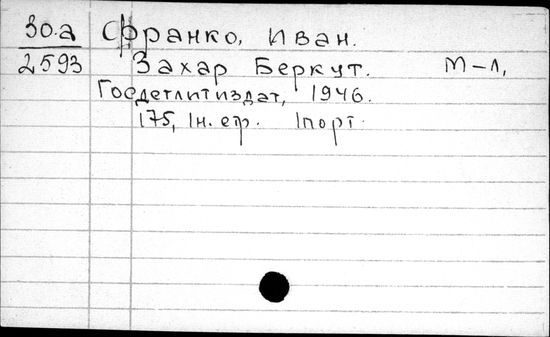 30.а Франко, Иван.
2593 Захар Беркут. М-Л,
Госдетлитиздат, 1946.
175, 1н. стр. 1порт.